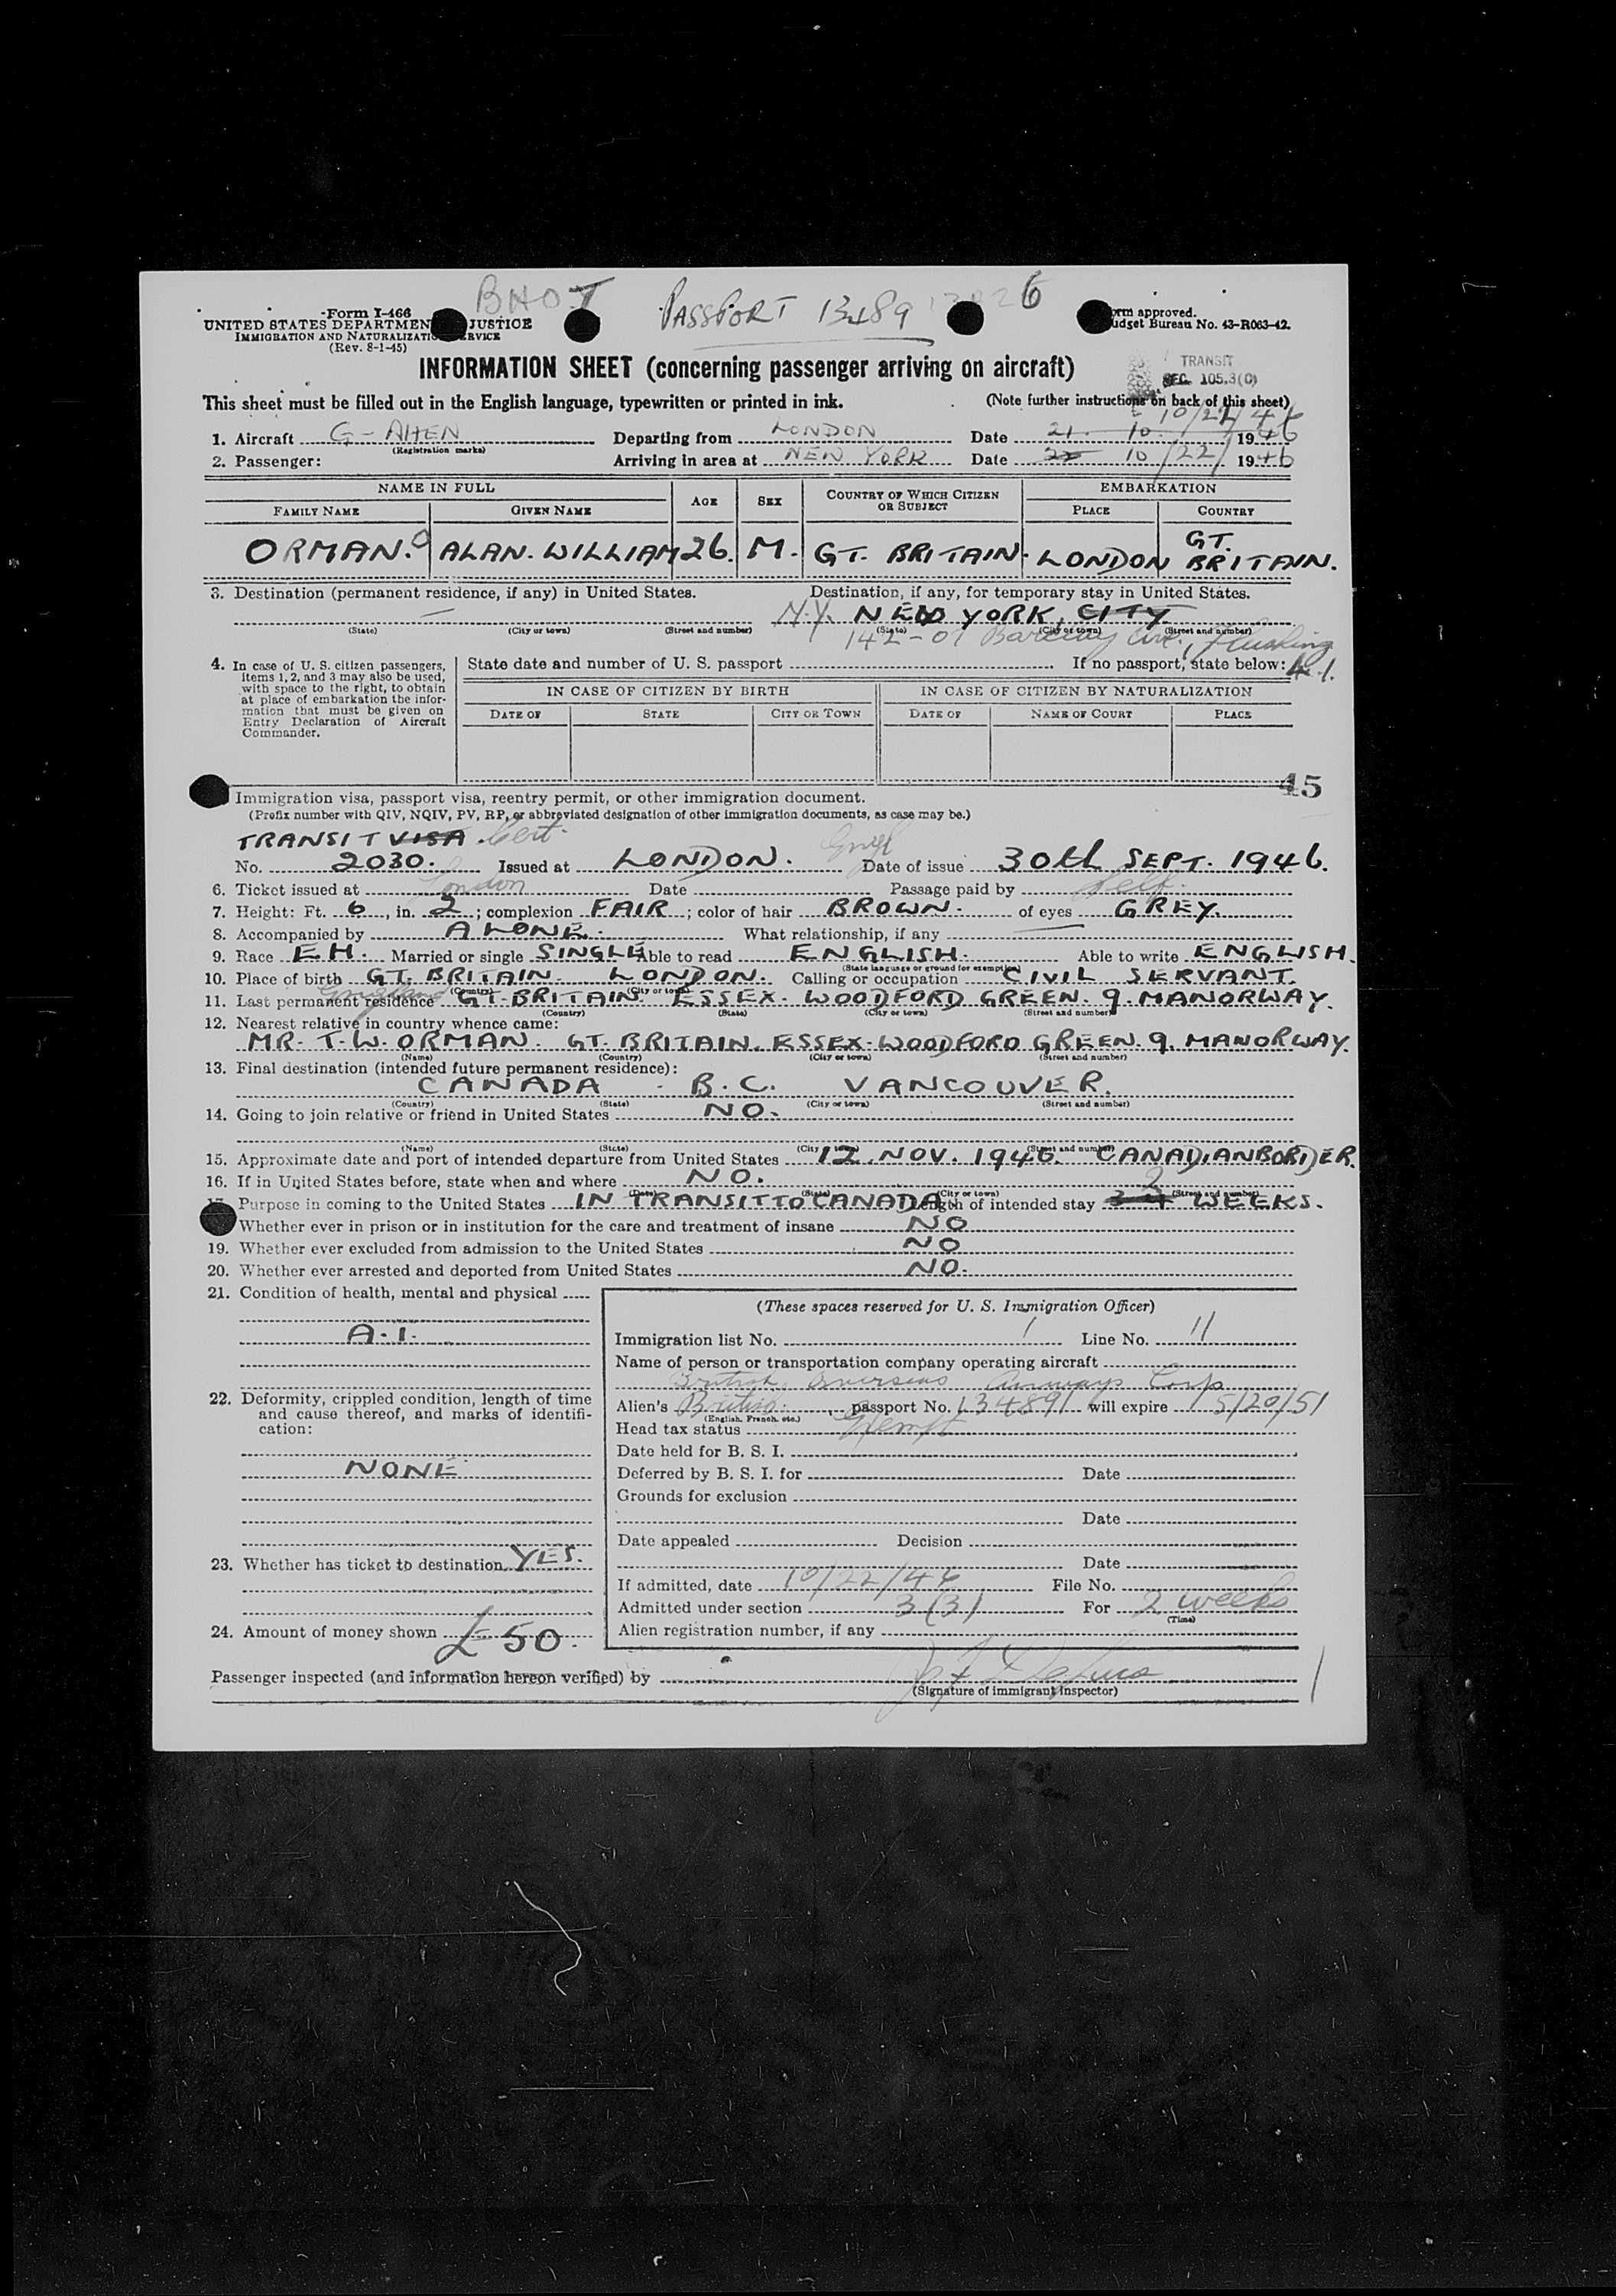 BHOT PASSPORT 13489
Form I-466
UNITED STATES DEPARTMENT JUSTICE
IMMIGRATION AND NATURALIZATION SERVICE
(Rev. 8-1-45)
Form approved.
Budget Bureau No. 43-R063-42.
INFORMATION SHEET (concerning passenger arriving on aircraft)
TRANSIT
SEC. 105.3(C)
This sheet must be filled out in the English language, typewritten or printed in ink. (Note further instructions on back of this sheet)
10/22/46
1. Aircraft G-AHEN Departing from LONDON Date 21. 10. 1946
(Registration marks)
2. Passenger: Arriving in area at NEW YORK Date 22 10/22/ 1946
NAME IN FULL AGE SEX COUNTRY OF WHICH CITIZEN OR SUBJECT EMBARKATION
FAMILY NAME GIVEN NAME PLACE COUNTRY
ORMAN. ALAN. WILLIAM 26. M. GT. BRITAIN. LONDON GT. BRITAIN.
3. Destination (permanent residence, if any) in United States. Destination, if any, for temporary stay in United States.
— N.Y. NEW YORK, CITY
(State) (City or town) (Street and number) (State) (City or town) (Street and number)
142-01 Barclay Ave., Flushing
L.I.
4. In case of U. S. citizen passengers, items 1, 2, and 3 may also be used, with space to the right, to obtain at place of embarkation the information that must be given on Entry Declaration of Aircraft Commander.
State date and number of U. S. passport If no passport, state below:
IN CASE OF CITIZEN BY BIRTH IN CASE OF CITIZEN BY NATURALIZATION
DATE OF STATE CITY OR TOWN DATE OF NAME OF COURT PLACE
45
Immigration visa, passport visa, reentry permit, or other immigration document.
(Prefix number with QIV, NQIV, PV, RP, or abbreviated designation of other immigration documents, as case may be.)
TRANSIT VISA Cert.
No. 2030. Issued at LONDON. Engl Date of issue 30th SEPT. 1946.
6. Ticket issued at London Date Passage paid by Self.
7. Height: Ft. 6, in. 2; complexion FAIR; color of hair BROWN. of eyes GREY.
8. Accompanied by ALONE. What relationship, if any —
9. Race EH. Married or single SINGLE Able to read ENGLISH. Able to write ENGLISH.
(State language or ground for exemption)
10. Place of birth GT. BRITAIN. LONDON. Calling or occupation CIVIL SERVANT.
(Country) (City or town)
11. Last permanent residence England GT. BRITAIN. ESSEX. WOODFORD GREEN. 9. MANORWAY.
(Country) (State) (City or town) (Street and number)
12. Nearest relative in country whence came:
MR. T. W. ORMAN. GT. BRITAIN. ESSEX. WOODFORD GREEN. 9. MANORWAY.
(Name) (Country) (City or town) (Street and number)
13. Final destination (intended future permanent residence):
CANADA - B.C. VANCOUVER.
(Country) (State) (City or town) (Street and number)
14. Going to join relative or friend in United States NO.
(Name) (State) (City or town) (Street and number)
15. Approximate date and port of intended departure from United States 12. NOV. 1946. CANADIAN BORDER.
16. If in United States before, state when and where NO.
(Date) (State) (City or town) (Street and number)
17. Purpose in coming to the United States IN TRANSIT TO CANADA Length of intended stay 2 WEEKS.
Whether ever in prison or in institution for the care and treatment of insane NO
19. Whether ever excluded from admission to the United States NO
20. Whether ever arrested and deported from United States NO.
21. Condition of health, mental and physical
A.1.
22. Deformity, crippled condition, length of time and cause thereof, and marks of identification:
NONE
23. Whether has ticket to destination YES.
24. Amount of money shown £50.
(These spaces reserved for U. S. Immigration Officer)
Immigration list No. 1 Line No. 11
Name of person or transportation company operating aircraft
British Overseas Airways Corp
Alien's British passport No. 134891 will expire 5/20/51
(English, French, etc.)
Head tax status Exempt
Date held for B. S. I.
Deferred by B. S. I. for Date
Grounds for exclusion
Date
Date appealed Decision
Date
If admitted, date 10/22/46 File No.
Admitted under section 3(3) For 2 weeks
(Time)
Alien registration number, if any
Passenger inspected (and information hereon verified) by
(Signature of immigrant inspector)